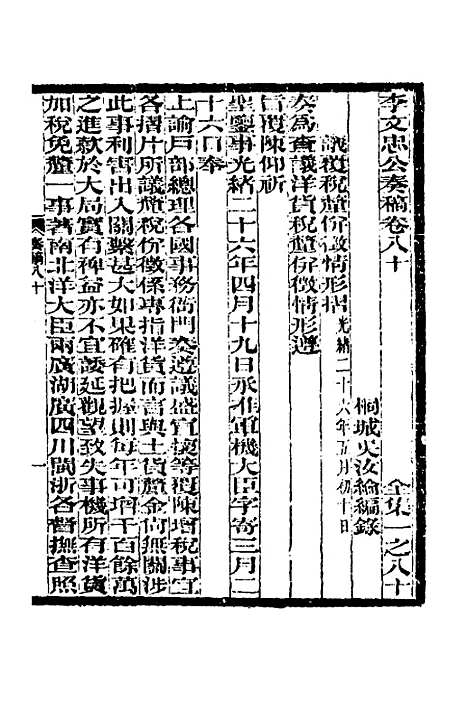 李文忠公奏稿卷八十　全集一之八十
桐城吳汝綸編錄
議覆稅釐併徵情形摺光緒二十六年五月初十日
奏爲查議洋貨稅釐併徵情形遵
旨覆陳仰祈
聖鑒事光緒二十六年四月十九日承准軍機大臣字寄三月二
十六日奉
上諭戶部總理各國事務衙門奏遵議盛宣懷等覆陳增稅事宜
各摺片所議釐稅併徵係專指洋貨而言與土貨釐金尚無關涉
此事利害出入關繫甚大如果確有把握則每年可增千百餘萬
之進款於大局實有裨益亦不宜諉延觀望致失事機所有洋貨
加稅免釐一事著南北洋大臣兩廣湖廣四川閩浙各督撫查照
奏稿八十
一